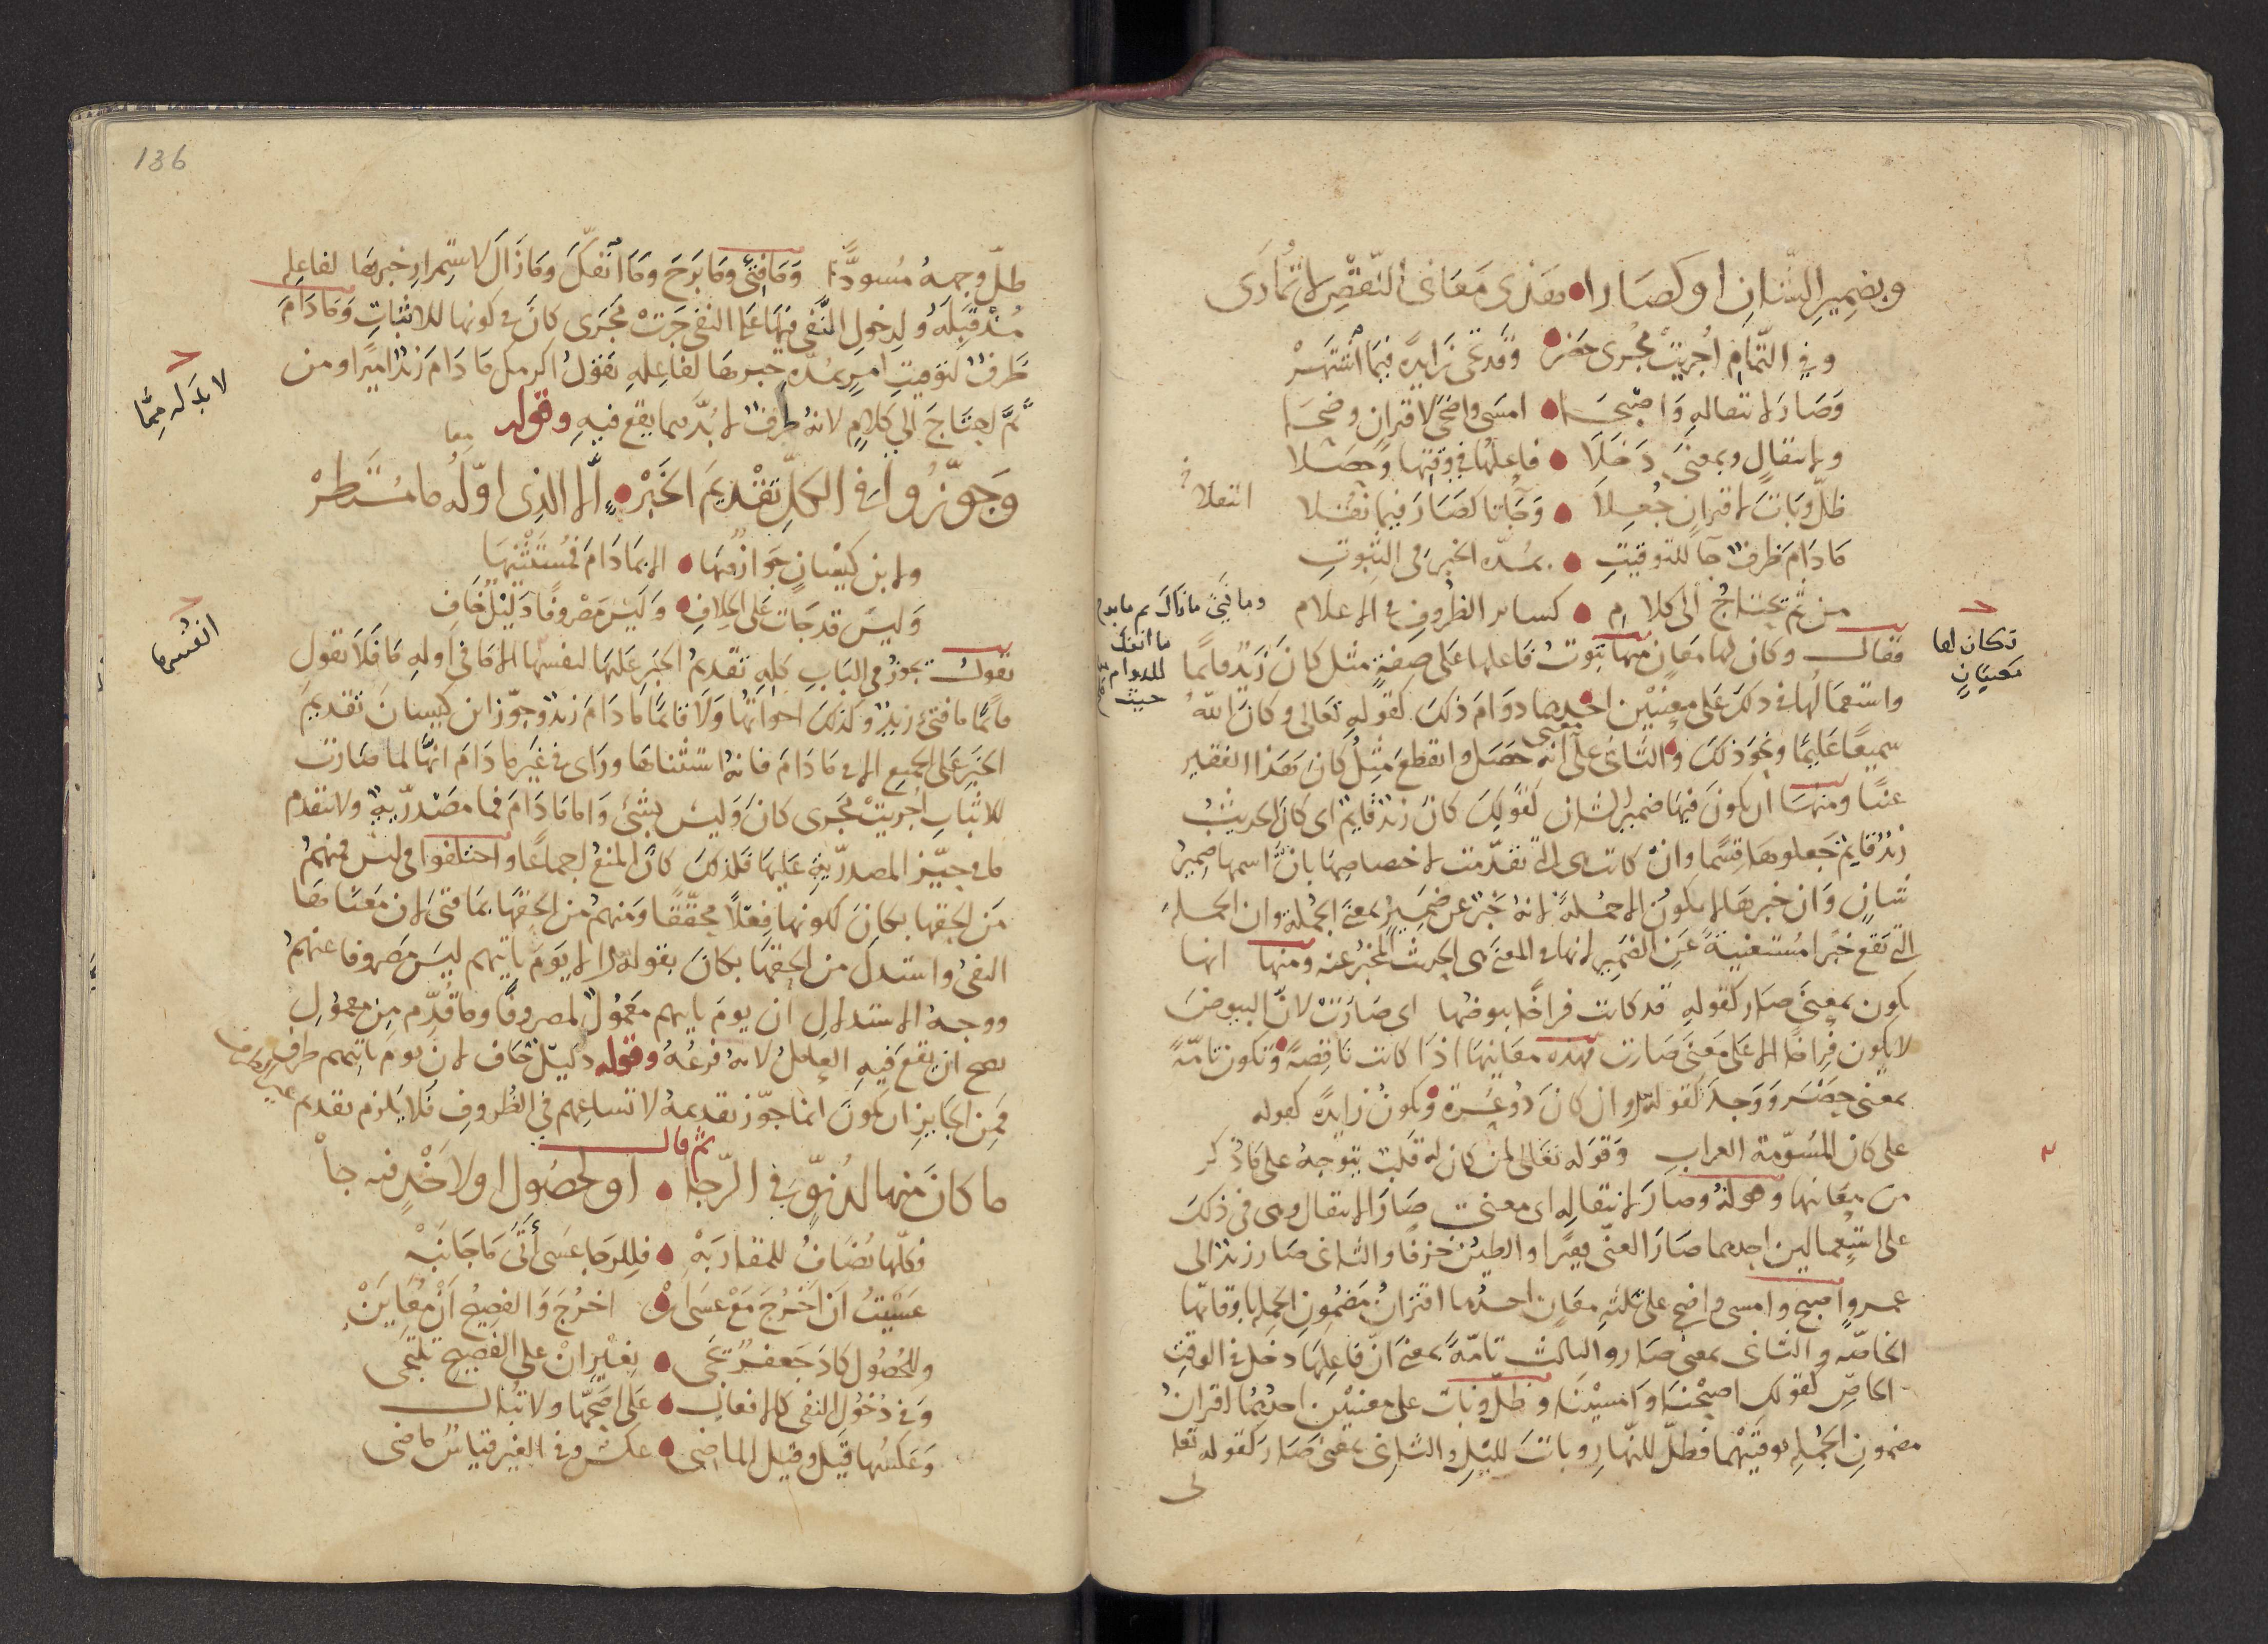 وبضمير الشان او كصارا فهذى معانى النقص لا تمارى
وفي التمام اجريت مجرى حضر وقد تجى زايدة فيما اشتهر
وصار لانتقاله واصبحا امسى واضحى لاقتران وضحا
ولانتقال وبمعنى دخلا فاعلها في وقتها وحصلا
ظل وبات لاقتران جعلا وجاتا كصار فيما نقلا
انتقلا
ما دام ظرف جا للتوقيت بمدة الخبر فى الثبوت
من ثم يحتاج الى كلام كساير الظروف فى الاعلام
وما فتئ ما زال ثم ما برح
ما انفك
للدوام
حيث
فقال وكان لها معان منها ثبوت فاعلها على صفة مثل كان زيد قايما
تكان لها
معنيان
واستعمالها فى ذلك على معنيين احدهما دوام ذلك كقوله تعالى وكان الله
سميعا عليما ونحو ذلك والثانى على معنى انه حصل وانقطع مثل كان هذا الفقير
غنيا ومنها ان يكون فيها ضمير الشان كقولك كان زيد قايم اى كان الحديث
زيد قايم جعلوها قسما وان كانت هى التى تقدمت لاختصاصها بان اسمها ضمير
شان وان خبرها لا يكون الا جملة لانه خبر عن ضمير بمعنى الجملة وان الجملة
التى تقع خبرا مستغنية عن الضمير لانها فى المعنى هى الحديث المخبر عنه ومنها انها
تكون بمعنى صار كقوله قد كانت فراخا بيوضها اى صارت لان البيوض
لا يكون فراخا الا على معنى صارت فهذه معانيها اذا كانت ناقصة وتكون تامة
بمعنى حضر ووجد كقوله وان كان ذو عسرة وتكون زايدة كقوله
على كان المسومة العراب وقوله تعالى لمن كان له قلب يتوجه على ما ذكر
من معانيها وقوله وصار لانتقاله اى معنى صار الانتقال وهى فى ذلك
على استعمالين احدهما صار الغنى فقيرا والطين خزفا والثانى صار زيد الى
عمرو اصبح وامسى واضحى على ثلثة معان احدها اقتران مضمون الجملة باوقاتها
الخاصة والثانى بمعنى صار والثالث تامة بمعنى ان فاعلها دخل فى الوقت
الخاص كقولك اصبحنا وامسينا وظل وبات على معنيين احدهما اقتران
مضمون الجملة بوقتيهما فظل للنهار وبات لليل والثانى بمعنى صار كقوله تعا
لى
136
ظل وجهه مسودا وما فتئ وما برح وما انفك وما زال لاستمرار خبرها لفاعله
مذ قبله ولدخول النفى فيها على النفى جرت مجرى كان فى كونها للاثبات وما دام
ظرف لتوقيت امر بمدة خبرها لفاعله تقول اكرمك ما دام زيد اميرا ومن
ثم احتاج الى كلام لانه ظرف لا بد مما يقع فيه وقوله
لا بد له مما
معا
وجوزوا فى الكل تقديم الخبر الا الذى اوله ما مستطر
ولابن كيسان جوازمها الا بما دام فمستثنيها
وليس قد جات على الخلاف وليس مصروفا دليل خاف
تقول يجوز فى الباب كله تقديم الخبر عليها لنفسها الا ما فى اوله ما فلا تقول
انفسها
قايما ما فتئ زيد وكذلك اخواتها ولا قايما ما دام زيد وجوز ابن كيسان تقديم
الخبر على الجميع الا فى ما دام فانه استثناها وراى فى غير ما دام انها لما صارت
للاثبات اجريت مجرى كان وليس بشئ واما ما دام فما مصدرية ولا يتقدم
ما فى حيز المصدرية عليها فلذلك كان المنع اجماعا واختلفوا فى ليس فمنهم
من الحقها بكان لكونها فعلا محققا ومنهم من الحقها بما فتئ لان معناها
النفى واستدل من الحقها بكان بقوله الا يوم ياتيهم ليس مصروفا عنهم
ووجه الاستدلال ان يوم ياتيهم معمول لمصروفا وما قدم من معمول
يصح ان يقع فيه العامل لانه فرعه وقوله دليل خاف لان يوم ياتيهم ظرف
فمن الجايز ان يكون انما جوز تقديمه لاتساعهم فى الظروف فلا يلزم تقديم
ثم قال
ما كان منها لدنو فى الرجا او لحصول او لاخذ فيه جا
فكلها تضاف للمقاربه فللرجا عسى اتى ما جانبه
عسيت ان اخرج مع عسى ان اخرج والفصيح ان مقاربن
وللحصول كاد جعفر يجى بغير ان على الفصيح تلتجى
وفى دخول النفى كالافعال على اصحها ولا تبال
وعكسها قيل وقيل الماضى عكس وفى الغير قياس ماضى